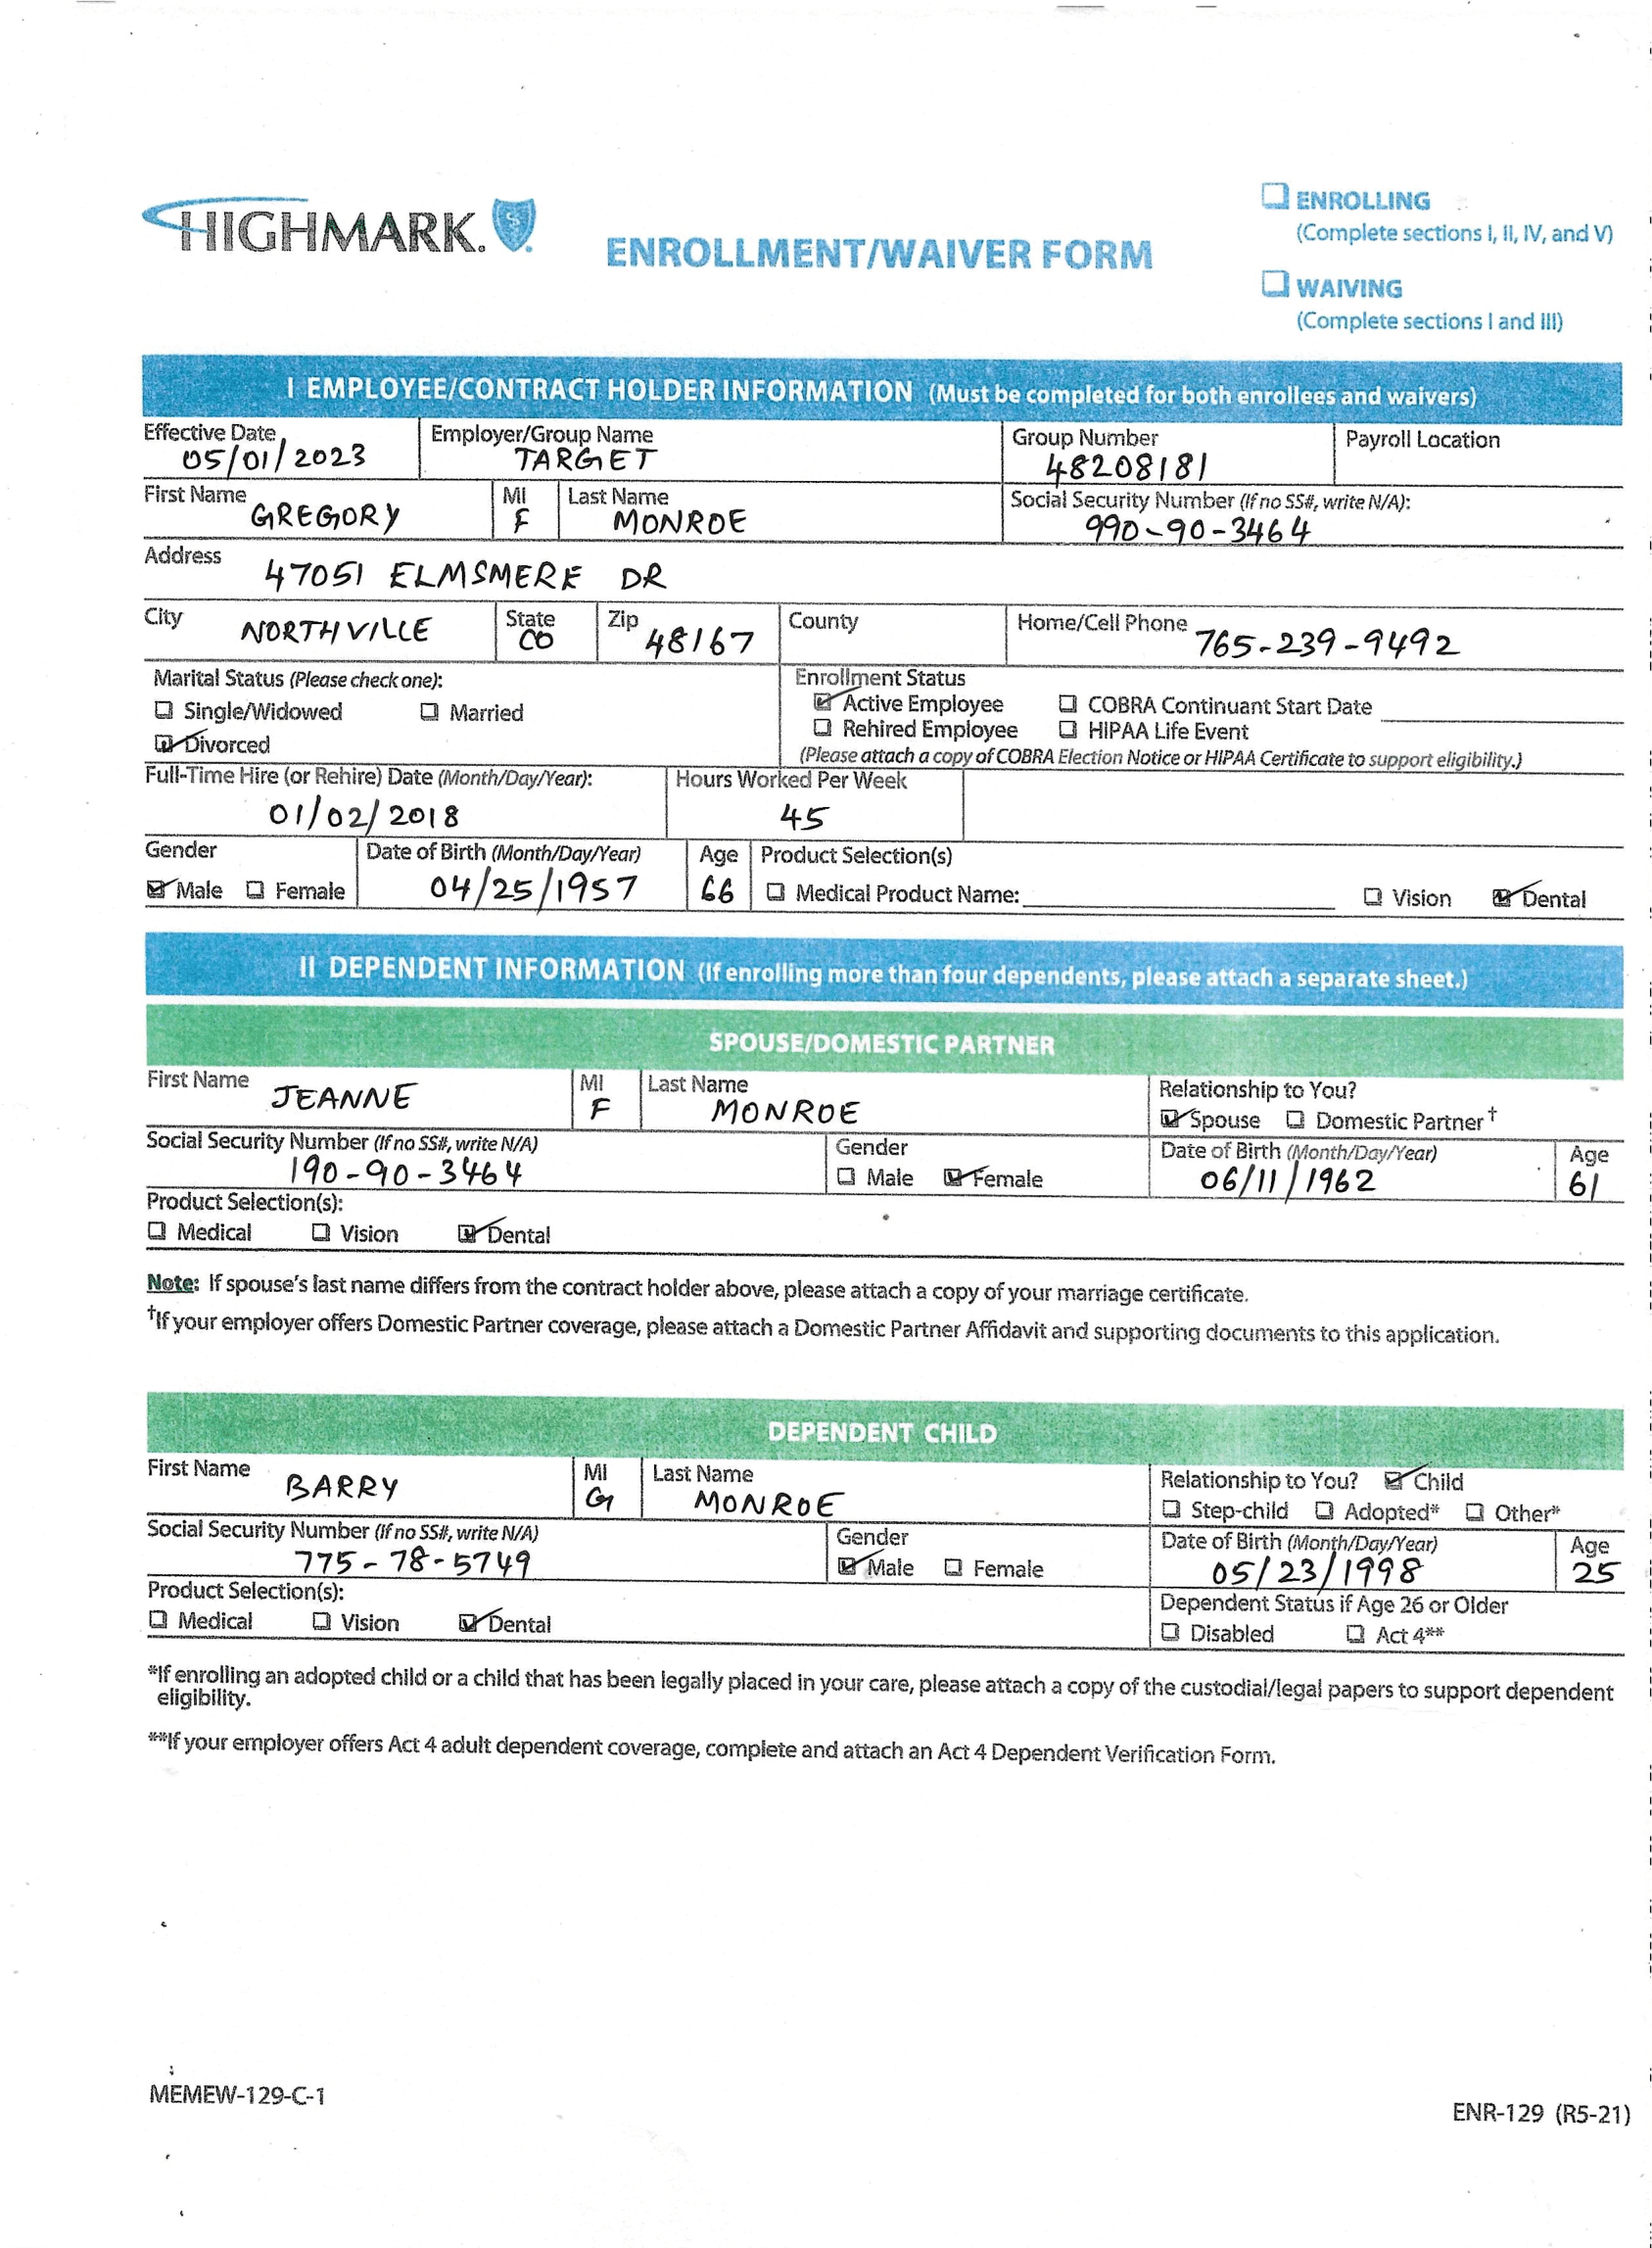 HIGHMARK.
ENROLLMENT/WAIVER FORM
ENROLLING
(Complete sections I, II, IV, and V)
WAIVING
(Complete sections I and III)
I EMPLOYEE/CONTRACT HOLDER INFORMATION (Must be completed for both enrollees and waivers)
Effective Date 05/01/2023 Employer/Group Name TARGET Group Number 48208181 Payroll Location
First Name GREGORY MI F Last Name MONROE Social Security Number (If no SS#, write N/A): 990-90-3464
Address 47051 ELMSMERE DR
City NORTHVILLE State CO Zip 48167 County Home/Cell Phone 765-239-9492
Marital Status (Please check one): Enrollment Status
Single/Widowed Married Active Employee COBRA Continuant Start Date
Divorced Rehired Employee HIPAA Life Event
(Please attach a copy of COBRA Election Notice or HIPAA Certificate to support eligibility.)
Full-Time Hire (or Rehire) Date (Month/Day/Year): Hours Worked Per Week
01/02/2018 45
Gender Date of Birth (Month/Day/Year) Age Product Selection(s)
Male Female 04/25/1957 66 Medical Product Name: Vision Dental
II DEPENDENT INFORMATION (If enrolling more than four dependents, please attach a separate sheet.)
SPOUSE/DOMESTIC PARTNER
First Name JEANNE MI F Last Name MONROE Relationship to You?
Spouse Domestic Partner†
Social Security Number (If no SS#, write N/A) Gender Date of Birth (Month/Day/Year) Age
190-90-3464 Male Female 06/11/1962 61
Product Selection(s):
Medical Vision Dental
Note: If spouse's last name differs from the contract holder above, please attach a copy of your marriage certificate.
†If your employer offers Domestic Partner coverage, please attach a Domestic Partner Affidavit and supporting documents to this application.
DEPENDENT CHILD
First Name BARRY MI G Last Name MONROE Relationship to You? Child
Step-child Adopted* Other*
Social Security Number (If no SS#, write N/A) Gender Date of Birth (Month/Day/Year) Age
775-78-5749 Male Female 05/23/1998 25
Product Selection(s): Dependent Status if Age 26 or Older
Medical Vision Dental Disabled Act 4**
*If enrolling an adopted child or a child that has been legally placed in your care, please attach a copy of the custodial/legal papers to support dependent
eligibility.
**If your employer offers Act 4 adult dependent coverage, complete and attach an Act 4 Dependent Verification Form.
MEMEW-129-C-1
ENR-129 (R5-21)